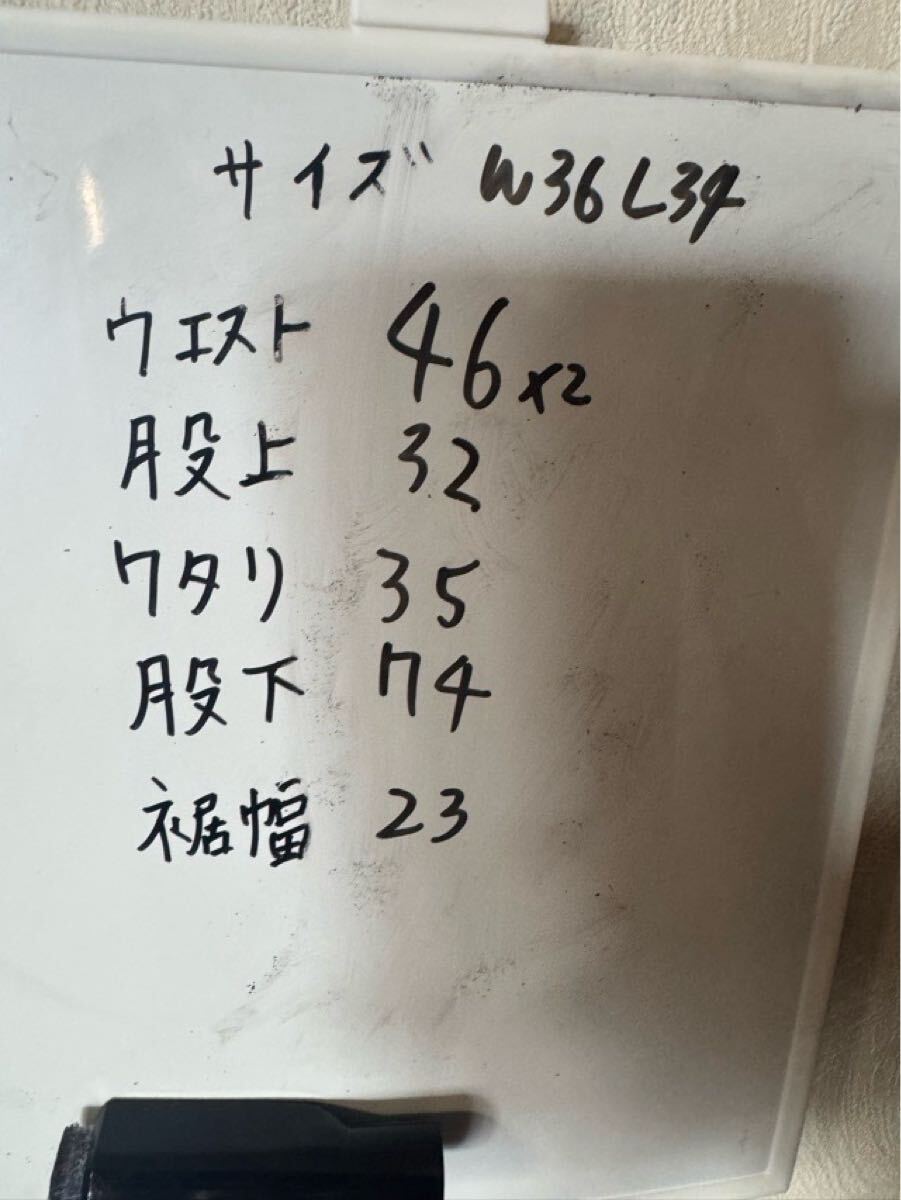 サイズ W36L34
ウエスト 46x2
股上 32
ワタリ 35
股下 74
裾幅 23